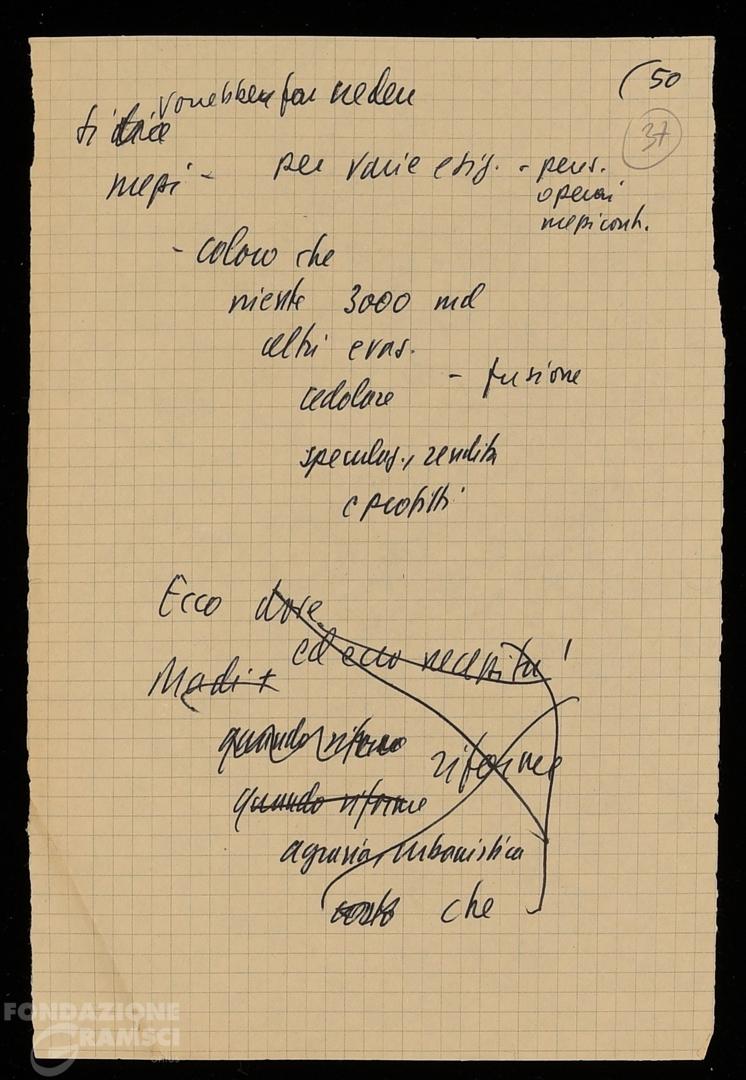 (50
37
vorrebber far vedere
si dice
mezzi - per varie esig. - pens.
operai
- coloro che
niente 3000 md
altri evas.
cedolare - fusione
speculaz., rendita
e profitti
Ecco dove
ed ecco necessità!
Ma di +
quando riforme
riforme
quando riforme
agraria, urbanistica
che
FONDAZIONE
GRAMSCI